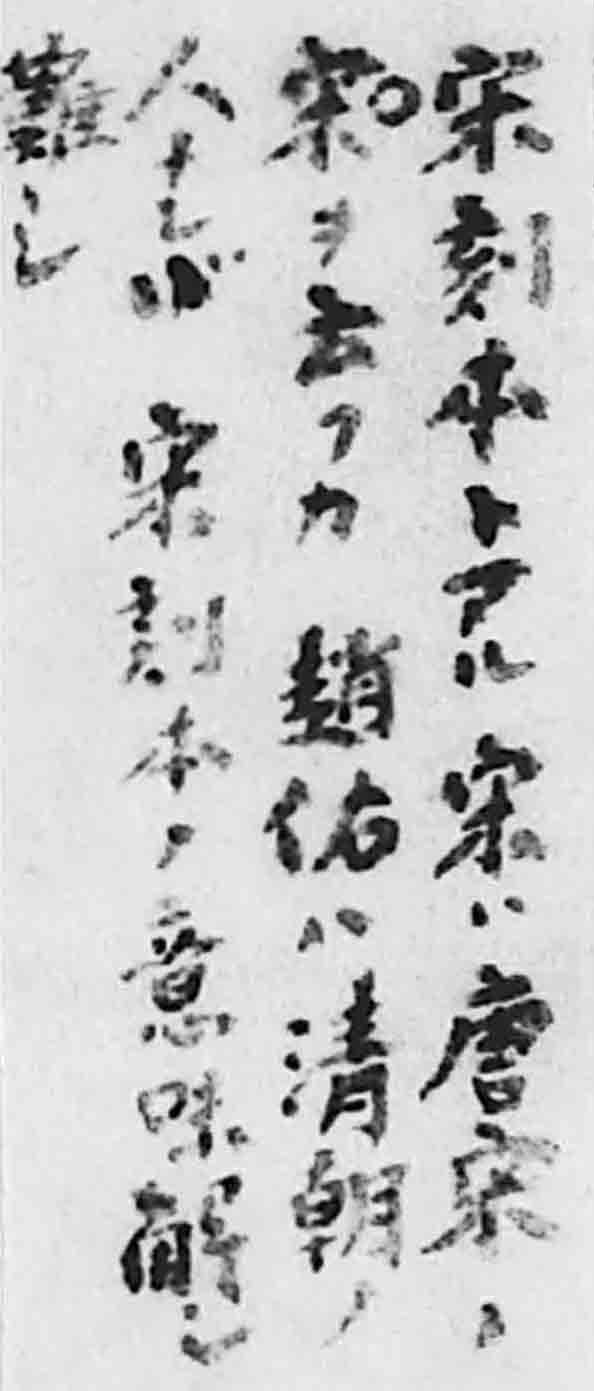 宋刻本トアル宋ハ唐宋ノ
宋。ヲ云フカ 趙佑ハ清朝ノ
人ナレバ 宋刻本ノ意味解シ
難シ